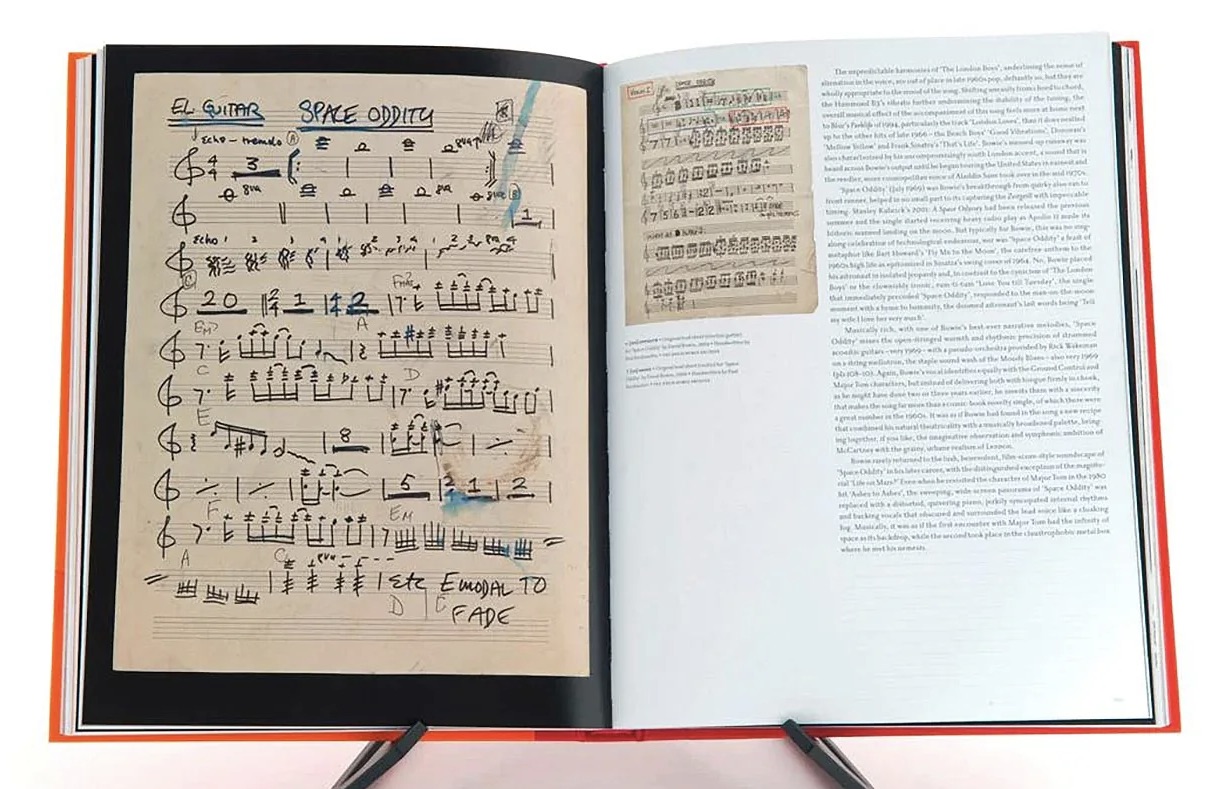 EL GUITAR SPACE ODDITY
Echo - tremolo A 8va
4 4 3
8va 8va 8va B
1
Echo 1 2 3 4 1 2 3 4 1 2 3 8va 4
C
F
20 2 4 1 4 4 2
Em A
C D
E
8
5 2 4 1 2
F Em
A C 8va
etc E MODAL TO
D C FADE
VIOLIN I SPACE ODDITY
7 5 6
The unpredictable harmonies of 'The London Boys', underlining the sense of
alienation in the voice, are out of place in late 1960s pop, defiantly so, but they are
wholly appropriate to the mood of the song. Shifting uneasily from chord to chord,
the Hammond B3's vibrato further undermining the stability of the tuning, the
overall musical effect of the accompaniment of this song feels more at home next
to Blur's Parklife of 1994, particularly the track 'London Loves', than it does nestled
up to the other hits of late 1966 – the Beach Boys' 'Good Vibrations', Donovan's
'Mellow Yellow' and Frank Sinatra's 'That's Life'. Bowie's messed-up runaway was
also characterized by his uncompromisingly south London accent, a sound that is
heard across Bowie's output until he began touring the United States in earnest and
the reedier, more cosmopolitan voice of Aladdin Sane took over in the mid 1970s.
'Space Oddity' (July 1969) was Bowie's breakthrough from quirky also-ran to
front runner, helped in no small part to its capturing the Zeitgeist with impeccable
timing. Stanley Kubrick's 2001: A Space Odyssey had been released the previous
summer and the single started receiving heavy radio play as Apollo 11 made its
historic manned landing on the moon. But typically for Bowie, this was no sing-
along celebration of technological endeavour, nor was 'Space Oddity' a feast of
metaphor like Bart Howard's 'Fly Me to the Moon', the carefree anthem to the
1960s high life as epitomized in Sinatra's swing cover of 1964. No, Bowie placed
his astronaut in isolated jeopardy and, in contrast to the cynicism of 'The London
Boys' or the clownishly ironic, rum-ti-tum 'Love You till Tuesday', the single
that immediately preceded 'Space Oddity', responded to the man-on-the-moon
moment with a hymn to humanity, the doomed astronaut's last words being 'Tell
my wife I love her very much'.
Musically rich, with one of Bowie's best-ever narrative melodies, 'Space
Oddity' mixes the open-stringed warmth and rhythmic precision of strummed
acoustic guitars – very 1969 – with a pseudo-orchestra provided by Rick Wakeman
on a string mellotron, the staple sound wash of the Moody Blues – also very 1969
Again, Bowie's vocal identifies equally with the Ground Control and
Major Tom characters, but instead of delivering both with tongue firmly in cheek,
as he might have done two or three years earlier, he invests them with a sincerity
that makes the song far more than a comic-book novelty single, of which there were
a great number in the 1960s. It was as if Bowie had found in the song a new recipe
that combined his natural theatricality with a musically broadened palette, bring-
ing together, if you like, the imaginative observation and symphonic ambition of
McCartney with the grainy, urbane realism of Lennon.
Bowie rarely returned to the lush, benevolent, film-score-style soundscape of
'Space Oddity' in his later career, with the distinguished exception of the magiste-
rial 'Life on Mars?' Even when he revisited the character of Major Tom in the 1980
hit 'Ashes to Ashes', the sweeping, wide-screen panorama of 'Space Oddity' was
replaced with a distorted, quavering piano, jerkily syncopated internal rhythms
and backing vocals that obscured and surrounded the lead voice like a cloaking
fog. Musically, it was as if the first encounter with Major Tom had the infinity of
space as its backdrop, while the second took place in the claustrophobic metal box
where he met his nemesis.